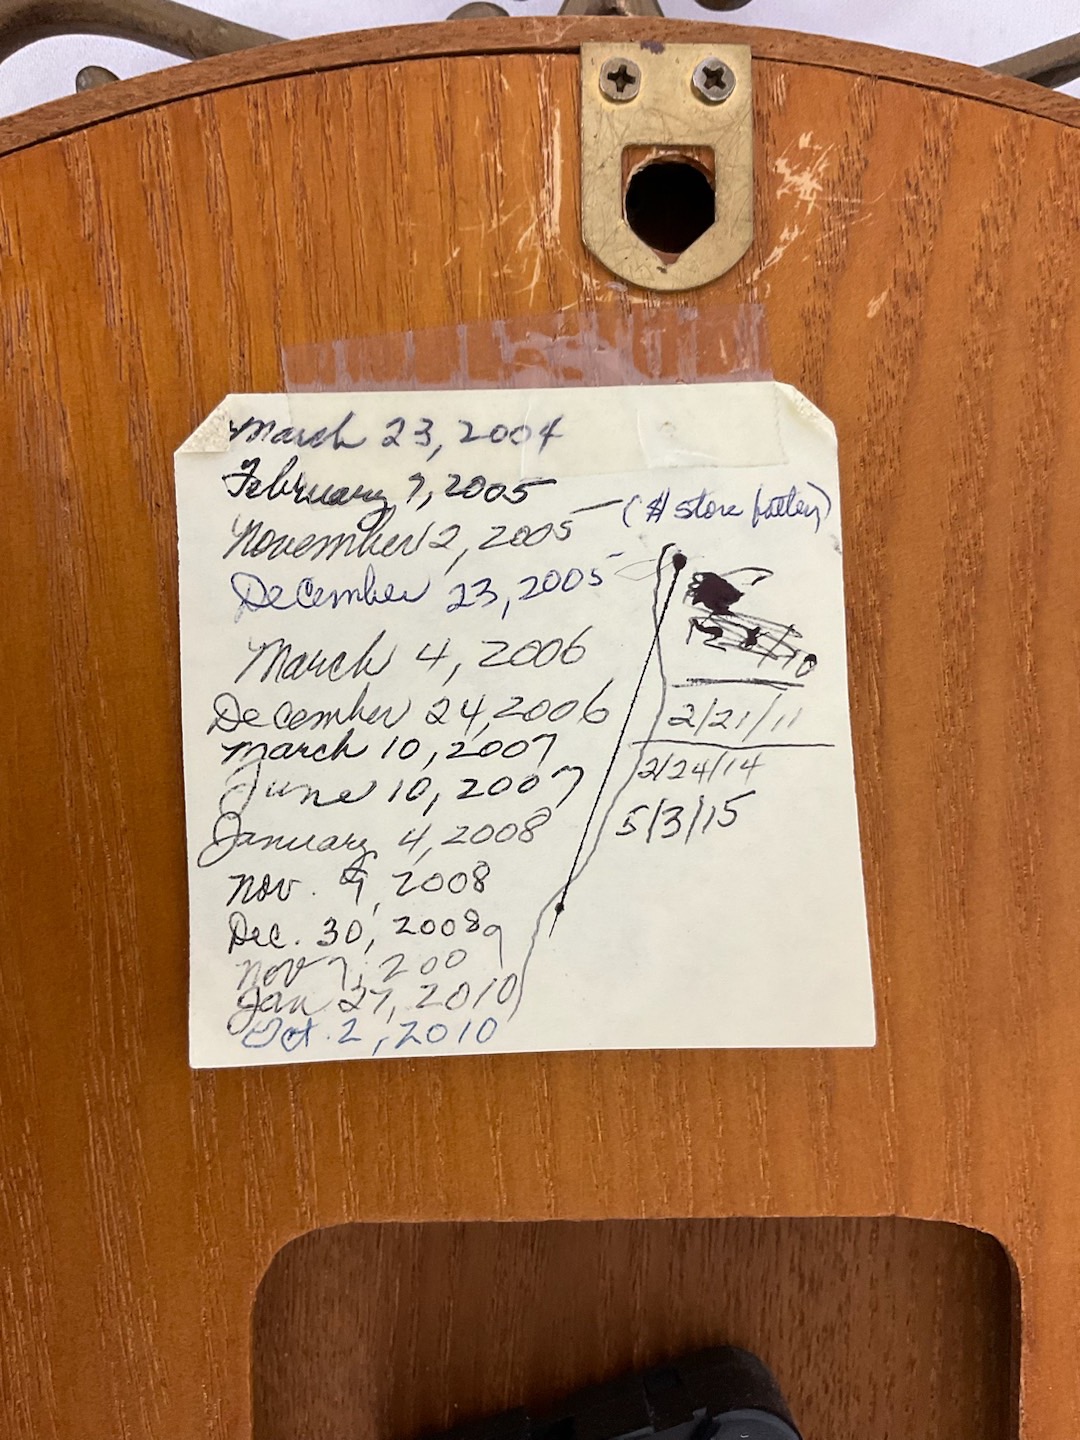 March 23, 2004
February 7, 2005
November 2, 2005 - ($ store battery)
December 23, 2005 -
March 4, 2006
December 24, 2006
March 10, 2007
June 10, 2007
January 4, 2008
Nov. 9, 2008
Dec. 30, 2008
Nov 7, 2009
Jan 27, 2010
Oct. 2, 2010
2/21/11
2/24/14
5/3/15